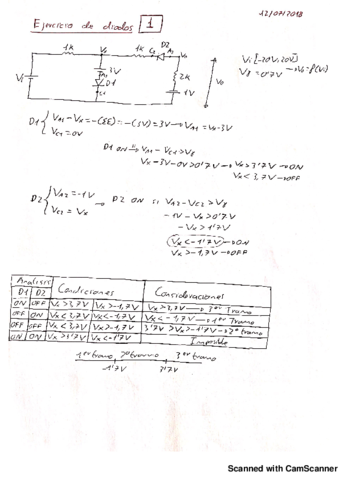 12/04/2018
Ejercicio de diodos 1
1k Vx 1k C2 D2 A2 Vo
Vi 3V A1 D1 C1 2k 1V Vo
Vi[-20V, 20V]
Vγ = 0'7V → Vo = f(Vi)
D1 { VA1 - Vx = -(3V) = 3V → VA1 = Vx - 3V
VC1 = 0V
D1 ON → VA1 - VC1 > Vγ
Vx - 3V - 0V > 0'7V → Vx > 3'7V → ON
Vx < 3,7V → OFF
D2 { VA2 = -1V
VC2 = Vx
→ D2 ON si VA2 - VC2 > Vγ
-1V - Vx > 0'7V
-Vx > 1'7V
Vx < -1'7V → ON
Vx > -1,7V → OFF
Analisis
D1 D2 Condiciones Consideraciones
ON OFF Vx > 3,7V Vx > -1,7V Vx > 3,7V → 3er Tramo
OFF ON Vx < 3,7V Vx < -1,7V Vx < -1,7V → 1er Tramo
OFF OFF Vx < 3,7V Vx > -1,7V 3'7V > Vx > -1'7V → 2º tramo
ON ON Vx > 3'7V Vx < -1'7V Imposible
1er tramo 2º tramo 3er tramo
-1'7V 3'7V
Scanned with CamScanner